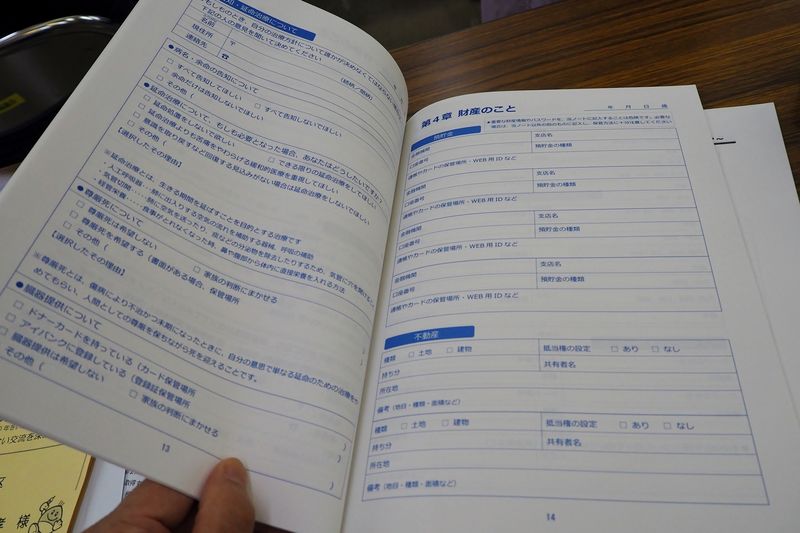 知・延命治療について
もしものとき、自分の治療方針について誰かが決めなくてはならない
下記の人の意見を聞いて決めてください
名前
現住所 〒
連絡先 ☎
●病名・余命の告知について
□ すべて告知してほしい □ すべて告知しないでほしい
□ 余命だけは告知しないでほしい
□ その他（
●延命治療について、もしも必要となった場合、あなたはどうしたいですか？
□ 延命処置をしないで欲しい □ できる限りの延命治療をしてほしい
□ 延命治療よりも苦痛をやわらげる緩和的医療を重視してほしい
□ 意識を取り戻すなど回復する見込みがない場合は延命治療をしないでほしい
□ その他（
【選択したその理由】
※延命治療とは、生きる期間を延ばすことを目的とする治療です
・人工呼吸器‥肺に出入りする空気の流れを補助する器械、呼吸の補助
・気管切開‥‥肺に空気を送ったり、痰などの分泌物を除去したりするため、気管に穴を開ける
・経管栄養‥‥食事がとれなくなった時、鼻や腹部から体内に直接栄養を入れる方法
●尊厳死について
□ 尊厳死は希望しない □ 家族の判断にまかせる
□ 尊厳死を希望する（書面がある場合、保管場所
□ その他（
【選択したその理由】
※尊厳死とは、傷病により不治かつ末期になったときに、自分の意思で単なる延命のための治療を
めてもらい、人間としての尊厳を保ちながら死を迎えることです。
●臓器提供について
□ ドナーカードを持っている（カード保管場所
□ アイバンクに登録している（登録証保管場所
□ 臓器提供は希望しない □ 家族の判断にまかせる
□ その他（ ）
13
第4章 財産のこと
年 月 日 現
●重要な財産情報やパスワードを、当ノートに記入することは危険です。必要な
場合は、当ノート以外の別のものに記入し、保管方法に十分注意してください
預貯金
金融機関 支店名
口座番号 預貯金の種類
通帳やカードの保管場所・WEB用IDなど
金融機関 支店名
口座番号 預貯金の種類
通帳やカードの保管場所・WEB用IDなど
金融機関 支店名
口座番号 預貯金の種類
通帳やカードの保管場所・WEB用IDなど
金融機関 支店名
口座番号 預貯金の種類
通帳やカードの保管場所・WEB用IDなど
不動産
種類 □ 土地 □ 建物 抵当権の設定 □ あり □ なし
持ち分 共有者名
所在地
備考（地目・種類・面積など）
種類 □ 土地 □ 建物 抵当権の設定 □ あり □ なし
持ち分 共有者名
所在地
備考（地目・種類・面積など）
14
い交流を深
様